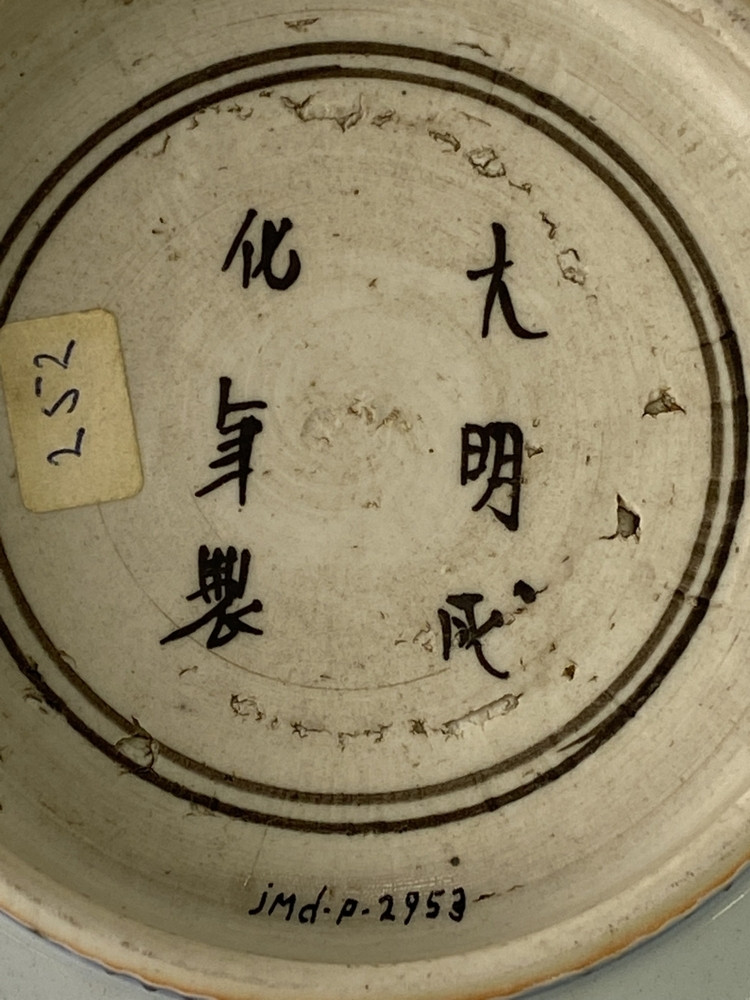 大明成
化年製
252
jMd-p-2953